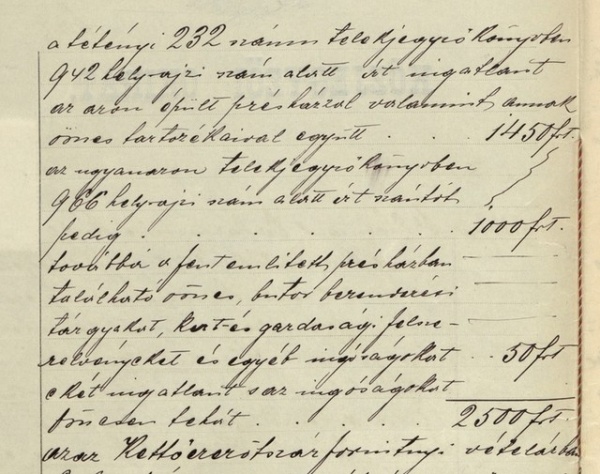 a tétényi 232 számu telekjegyzőkönyvben
942 hely-rajzi szám alatt írt ingatlant
az azon épült présházzal valamint annak
összes tartozékaival együtt . . . 1450 frt.
az ugyanazon telekjegyzőkönyvben
966 hely-rajzi szám alatt írt szántót
pedig . . . . . . 1000 frt.
továbbá a fent említett présházban
található összes, butor berendezési
tárgyakat, kert-és gazdasági felsze-
relvényeket és egyéb ingóságokat . . 50 frt
ezket ingatlant s az ingóságokat
összesen tehát . . . . . 2500 frt.
azaz Kettőezerötszáz forintnyi vételárban